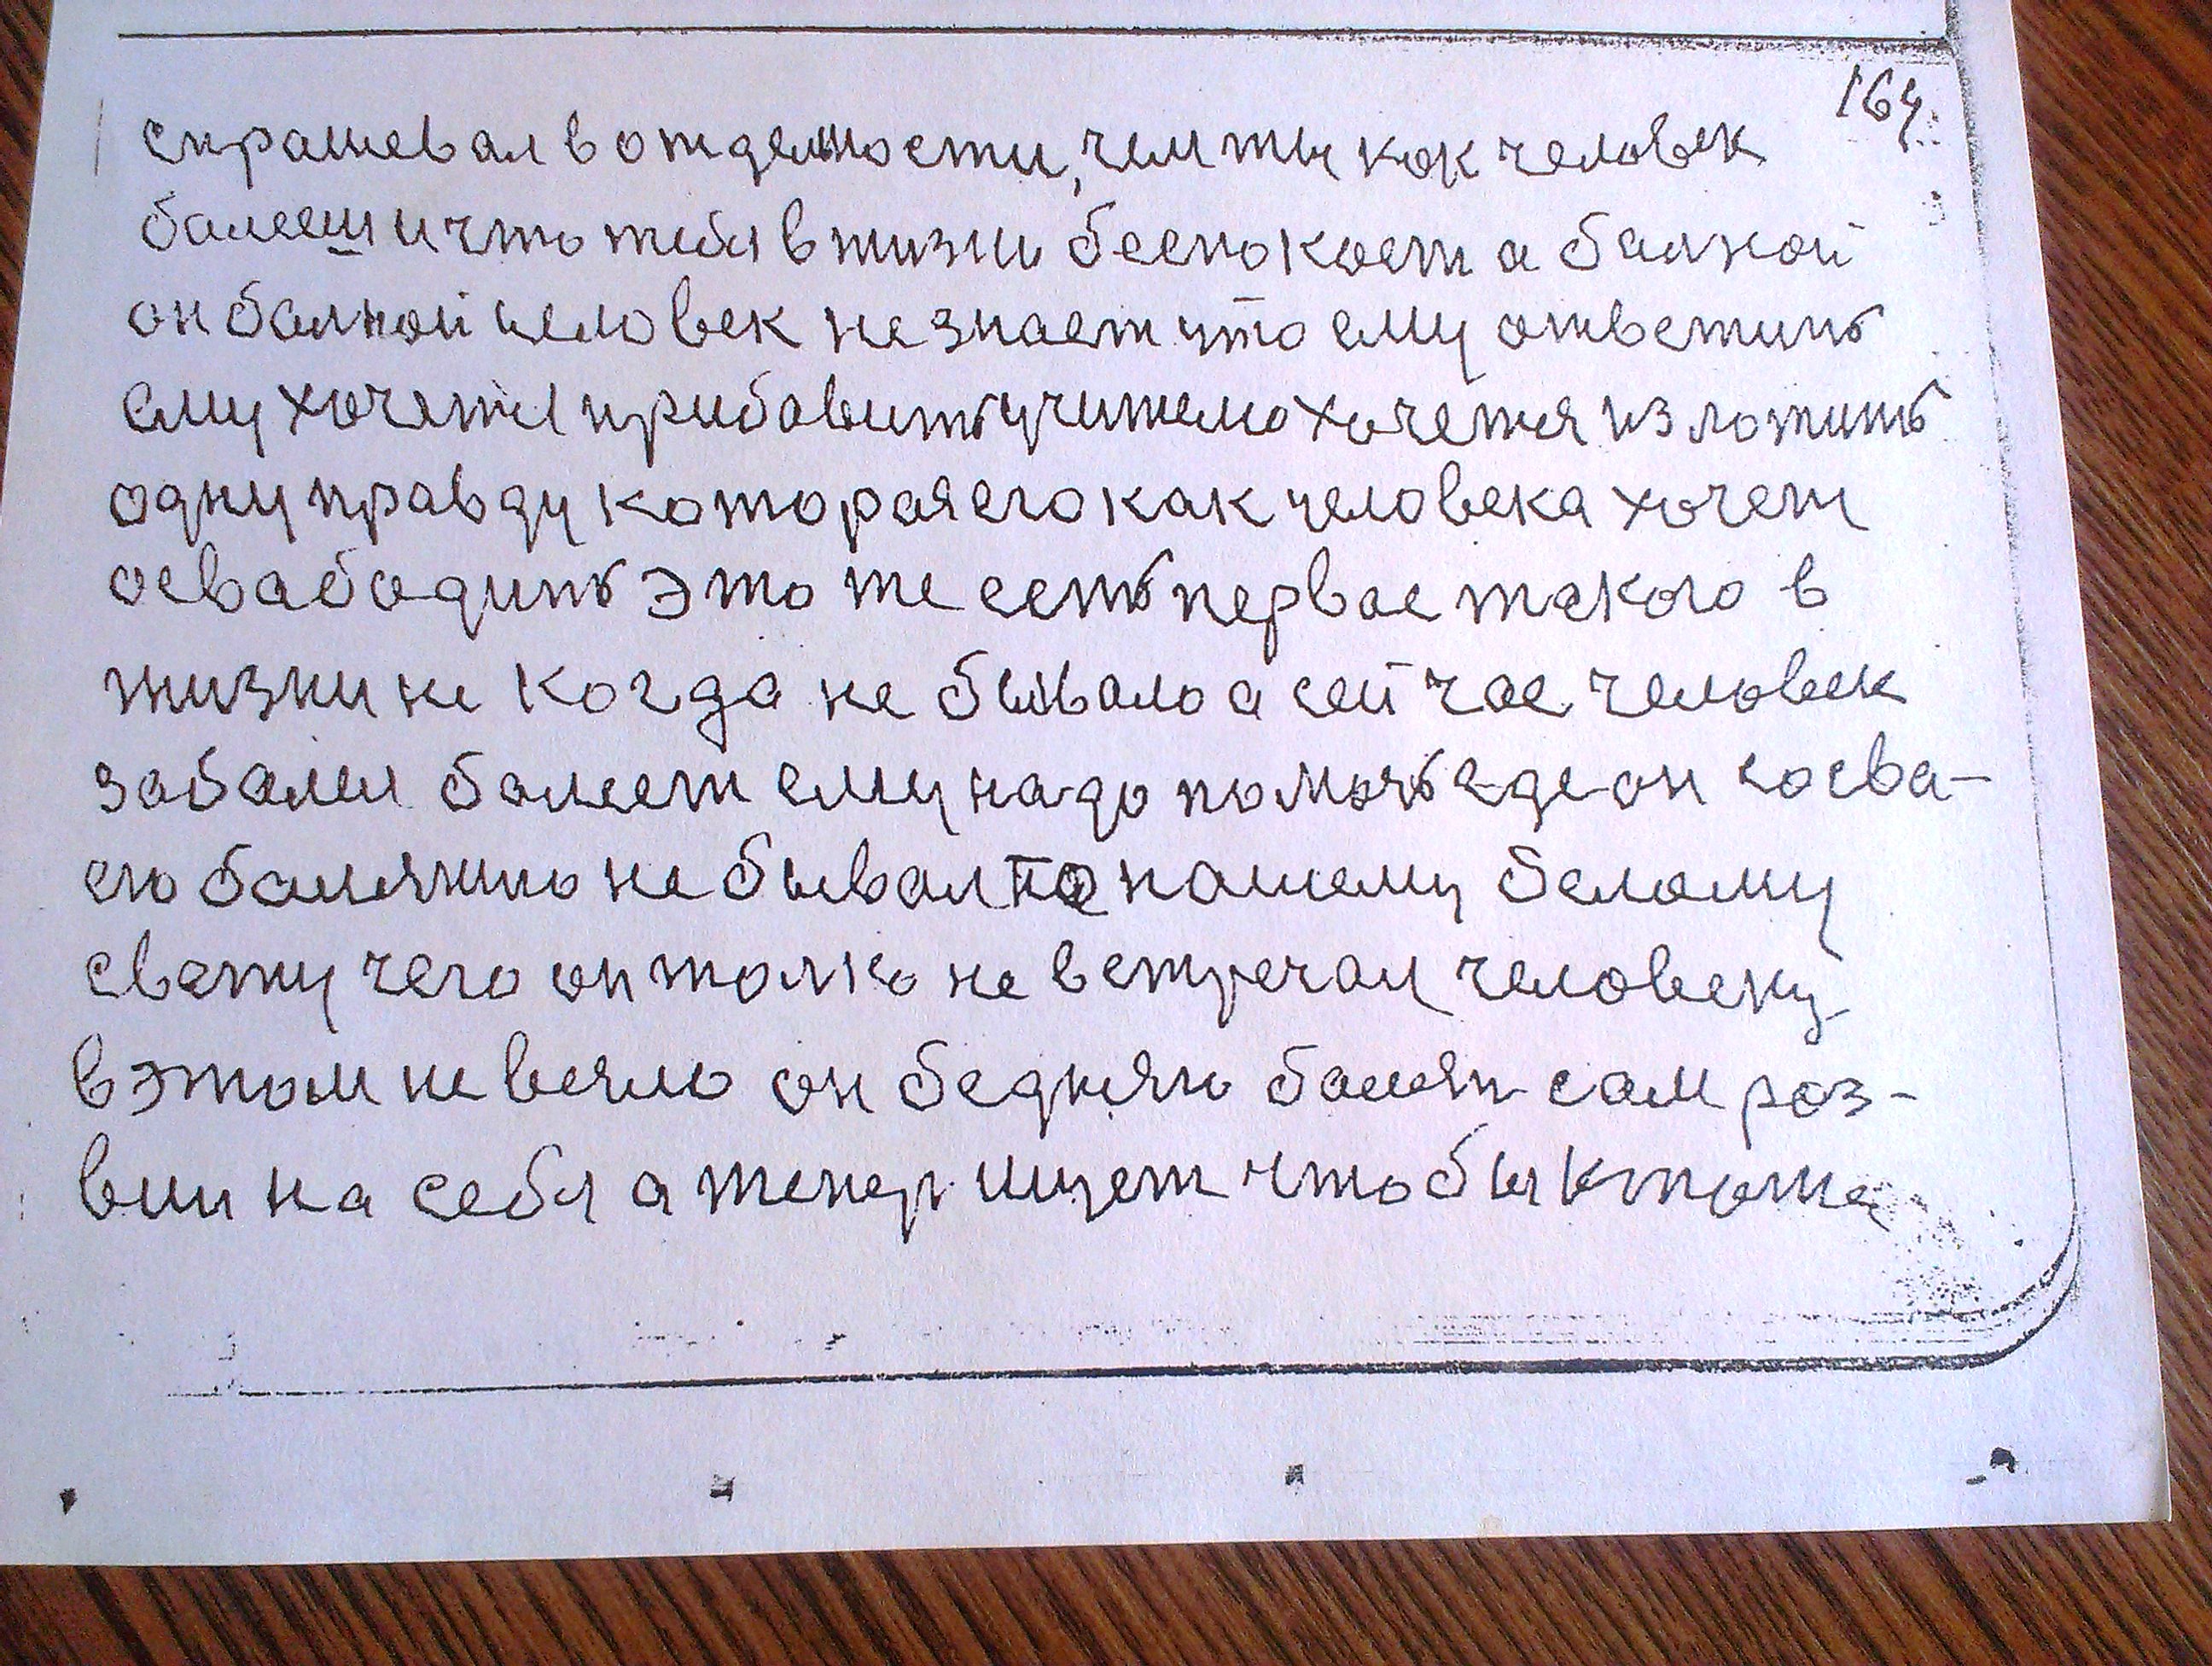 164
спрашевал в отделности, чем ты как человек
балееш и что тебя в жизни беспокоет а балной
он балной человек не знает что ему ответить
ему хочетя прибавить учителю хочетя изложить
одну правду которая его как человека хочет
освабодить это же есть первае такого в
жизни не когда не бывало а сей час человек
забалел балеет ему надо помочь где он со сва-
ею балезнию не бывал по нашему беламу
свету чего он толко не встречал человеку
в этом не везло он бедняю сам раз-
вил на себя а тепер ищет что бы